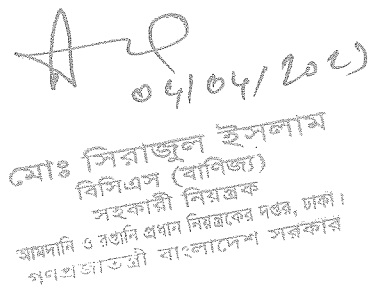 04/04/2021
মোঃ সিরাজুল ইসলাম
বিসিএস (বাণিজ্য)
সহকারী নিয়ন্ত্রক
আমদানি ও রপ্তানি প্রধান নিয়ন্ত্রকের দপ্তর, ঢাকা।
গণপ্রজাতন্ত্রী বাংলাদেশ সরকার